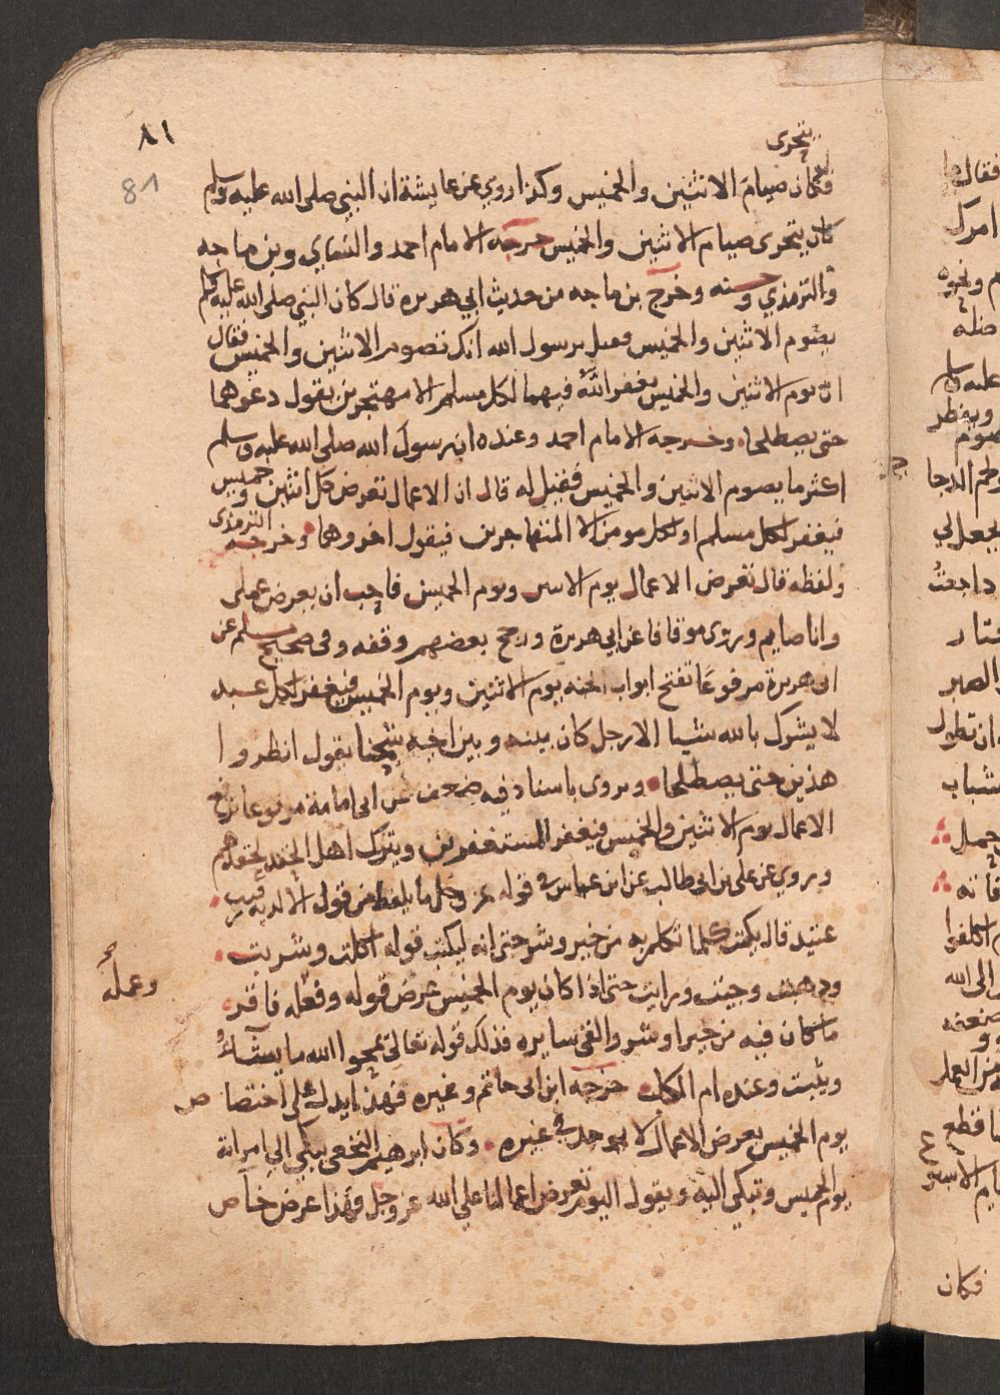 ٨١
81
يتحرى
فكان صيام الاثنين والخميس وكذا روي عن عايشة ان النبي صلى الله عليه وسلم
كان يتحرى صيام الاثنين والخميس خرجه الامام احمد والنساي وبن ماجه
والترمذي وحسنه وخرج بن ماجه من حديث ابي هريرة قال كان النبي صلى الله عليه وسلم
يصوم الاثنين والخميس فقيل يرسول الله انك تصوم الاثنين والخميس فقال
ان يوم الاثنين والخميس يغفر الله فيهما لكل مسلم الا مهتجرين يقول دعوهما
حتى يصطلحا وخرجه الامام احمد وعنده ان رسول الله صلى الله عليه وسلم
اكثر ما يصوم الاثنين والخميس فقيل له قال ان الاعمال تعرض كل اثنين وخميس
فيغفر لكل مسلم او لكل مومن الا المتهاجرين فيقول اخروهما وخرجه الترمذي
ولفظه قال تعرض الاعمال يوم الاثنين ويوم الخميس فاحب ان يعرض عملي
وانا صايم وروى موقافا عن ابي هريرة ورجح بعضهم وقفه وفي صحيح مسلم عن
ابي هريرة مرفوعا تفتح ابواب الجنه يوم الاثنين ويوم الخميس فيغفر لكل عبد
لا يشرك بالله شيا الا رجل كان بينه وبين اخيه شحنا يقول انظروا
هذين حتى يصطلحا ويروى باسناد فيه ضعف عن ابي امامة مرفوعا ترفع
الاعمال يوم الاثنين والخميس فيغفر للمستغفرين ويترك اهل الحقد لحقدهم
وروي عن علي بن ابي طالب عن ابن عباس في قوله عز وجل ما يلفظ من قول الا لديه رقيب
عتيد قال يكتب كلما تكلم به من خير وشر حتى انه ليكتب قوله اكلت وشربت
وذهبت وجيت ورايت حتى اذا كان يوم الخميس عرض قوله وفعله فاقر
وعمله
ما كان فيه من خير او شر والقى سايره فذلك قوله تعالى يمحوا الله ما يشاء
ويثبت وعنده ام الكتاب خرجه ابن ابي حاتم وغيره فهذا يدل على اختصاص
يوم الخميس بعرض الاعمال لا يوجد في غيره وكان ابرهيم النخعي يبكي الى امراته
يوم الخميس وتبكي اليه ويقول اليوم تعرض اعمالنا على الله عز وجل فهذا عرض خاص